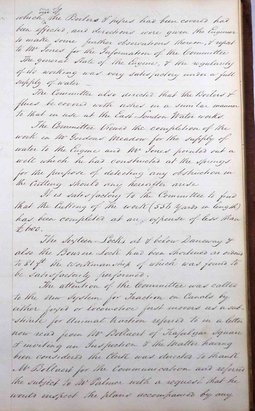 which the Boilers & pipes has been covered has
been effected, and directions were given the Engineer
to make some further observations thereon, & report
to Mr Jones for the Information of the Committee
The general state of the Engine, & the regularity
of its working was very satisfactory under a full
supply of water.
The Committee also directed that the Boilers &
flues be covered with ashes in a similar manner
to that in use at the East London Water works.
The Committee viewed the completion of the
work in Mr Meadow, for the supply of
water to the Engine and Mr Jones pointed out a
well which he had constructed at the springs
for the purpose of detecting any obstruction in
the Culvert should any hereafter arise.
It is satisfactory to the Committee to find
that the cutting of the work (532 Yards in length)
has been completed at an expense of less than
two.
The Sixteen Locks at & below Daneway &
also the Bourne Lock had been shortened as ordered
to the Workmanship of which was found to
be satisfactorily performed.
The attention of the Committee was called
to the new system for Traction on Canals by
either fixed or locomotive
for Animal Traction referred to in a letter
now read from Mr Bollaert of Trafalgar Square
& inviting an Inspection & the Matter having
been considered the Clerk was directed to thank
Mr Bollaert for the Communication and referred
the subject to Mr Palmer with a request that he
would inspect the plans accompanied by any